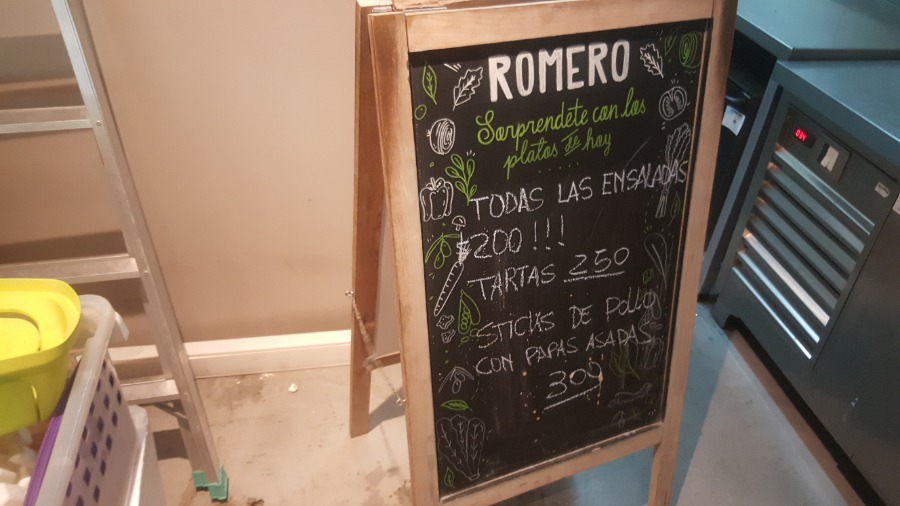 ROMERO
Sorprendete con los
platos de hoy
TODAS LAS ENSALADAS
$200!!!
TARTAS 250
STICKS DE POLLO
CON PAPAS ASADAS
300